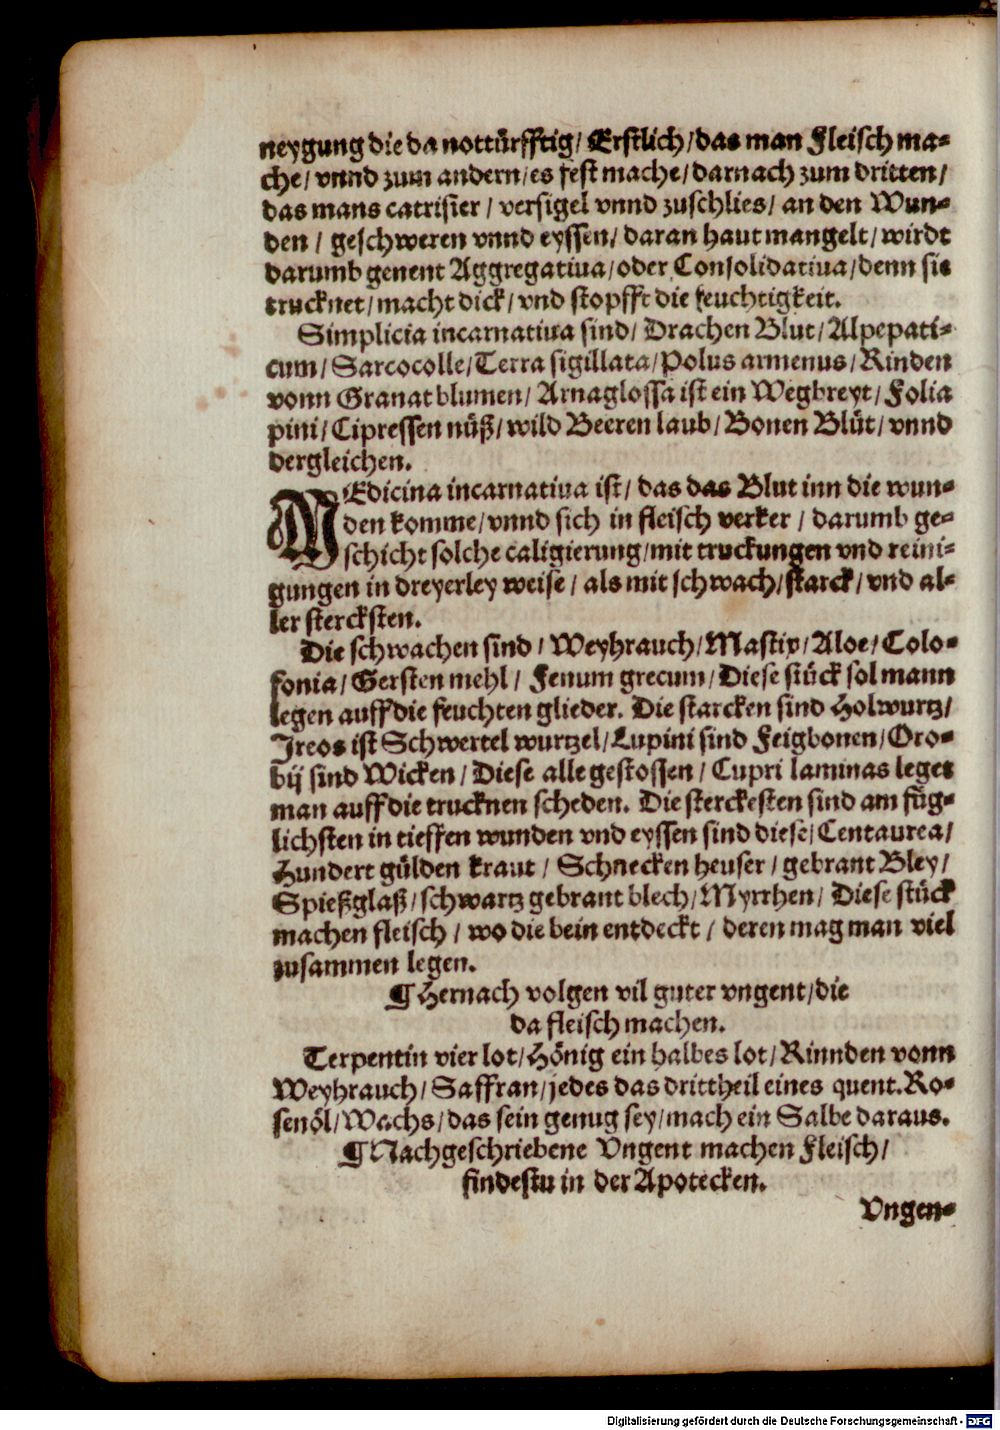 neygung die da nottürfftig/ Erstlich/ das man Fleisch ma-
che/ vnnd zum andern/ es fest mache/ darnach zum dritten/
das mans catrisier/ versigel vnnd zuschlies/ an den Wun-
den/ geschweren vnnd eyssen/ daran haut mangelt/ wirdt
darumb genent Aggregatiua/ oder Consolidatiua/ denn sie
trucknet/ macht dick/ vnd stopfft die feuchtigkeit.
Simplicia incarnatiua sind/ Drachen Blut/ Alpepati-
cum/ Sarcocolle/ Terra sigillata/ Polus armenus/ Rinden
vonn Granatblumen/ Arnaglossa ist ein Wegbreyt/ Folia
pini/ Cipressen nüß/ wild Beeren laub/ Bonen Blüt/ vnnd
dergleichen.
MEdicina incarnatiua ist/ das das Blut inn die wun-
den komme/ vnnd sich in fleisch verker/ darumb ge-
schicht solche caligierung/ mit truckungen vnd reini-
gungen in dreyerley weise/ als mit schwach/ starck/ vnd al-
ler stercksten.
Die schwachen sind/ Weyhrauch/ Mastix/ Aloe/ Colo-
fonia/ Gersten mehl/ Fenum grecum/ Diese stück sol mann
legen auff die feuchten glieder. Die starcken sind Holwurtz/
Jreos ist Schwertel wurtzel/ Lupini sind Feigbonen/ Oro-
bij sind Wicken/ Diese alle gestossen/ Cupri laminas leget
man auff die trucknen scheden. Die sterckesten sind am füg-
lichsten in tieffen wunden vnd eyssen sind diese/ Centaurea/
Hundert gülden kraut/ Schnecken heuser/ gebrant Bley/
Spießglaß/ schwartz gebrant blech/ Myrrhen/ Diese stück
machen fleisch/ wo die bein entdeckt/ deren mag man viel
zusammen legen.
¶ Hernach volgen vil guter vngent/ die
da fleisch machen.
Terpentin vier lot/ Hönig ein halbes lot/ Rinnden vonn
Weyhrauch/ Saffran/ jedes das drittheil eines quent. Ro-
senöl/ Wachs/ das sein genug sey/ mach ein Salbe daraus.
¶ Nachgeschriebene Vngent machen Fleisch/
findestu in der Apotecken.
Vngen-
Digitalisierung gefördert durch die Deutsche Forschungsgemeinschaft - DFG